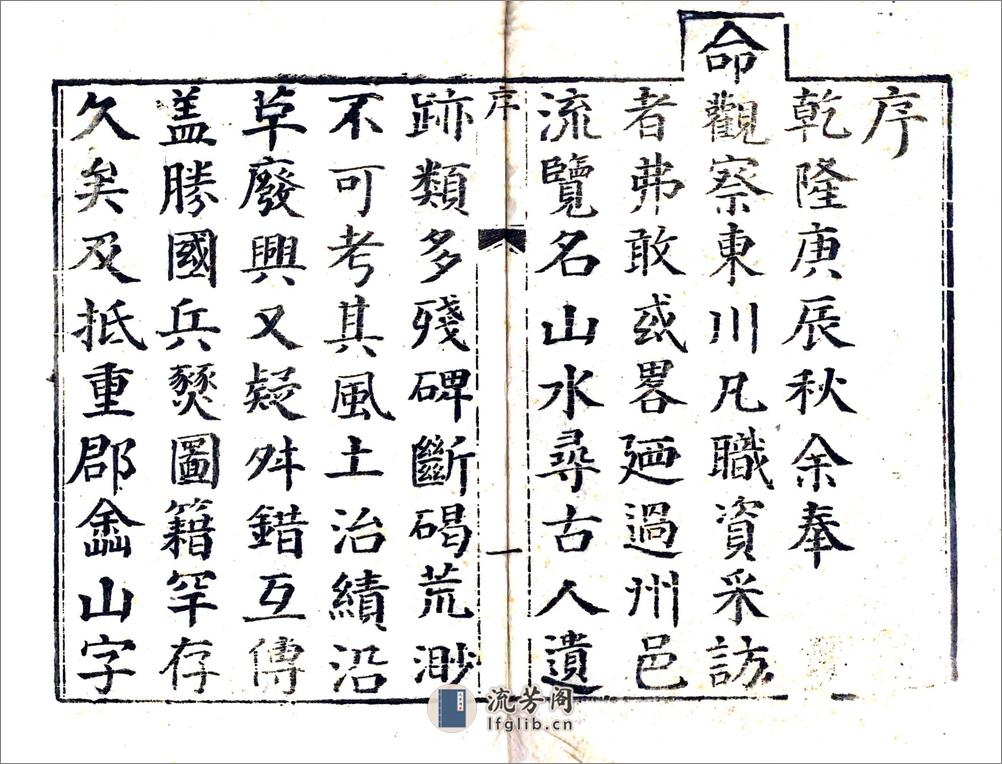 序
乾隆庚辰秋余奉
命觀察東川凡職資采訪
者弗敢或畧廼過州邑
流覽名山水尋古人遺
序
一
跡類多殘碑斷碣荒渺
不可考其風土治績沿
草廢興又疑舛錯互傳
盖勝國兵燹圖籍罕存
久矣及抵重郡龕山字
流芳阁
lfglib.cn